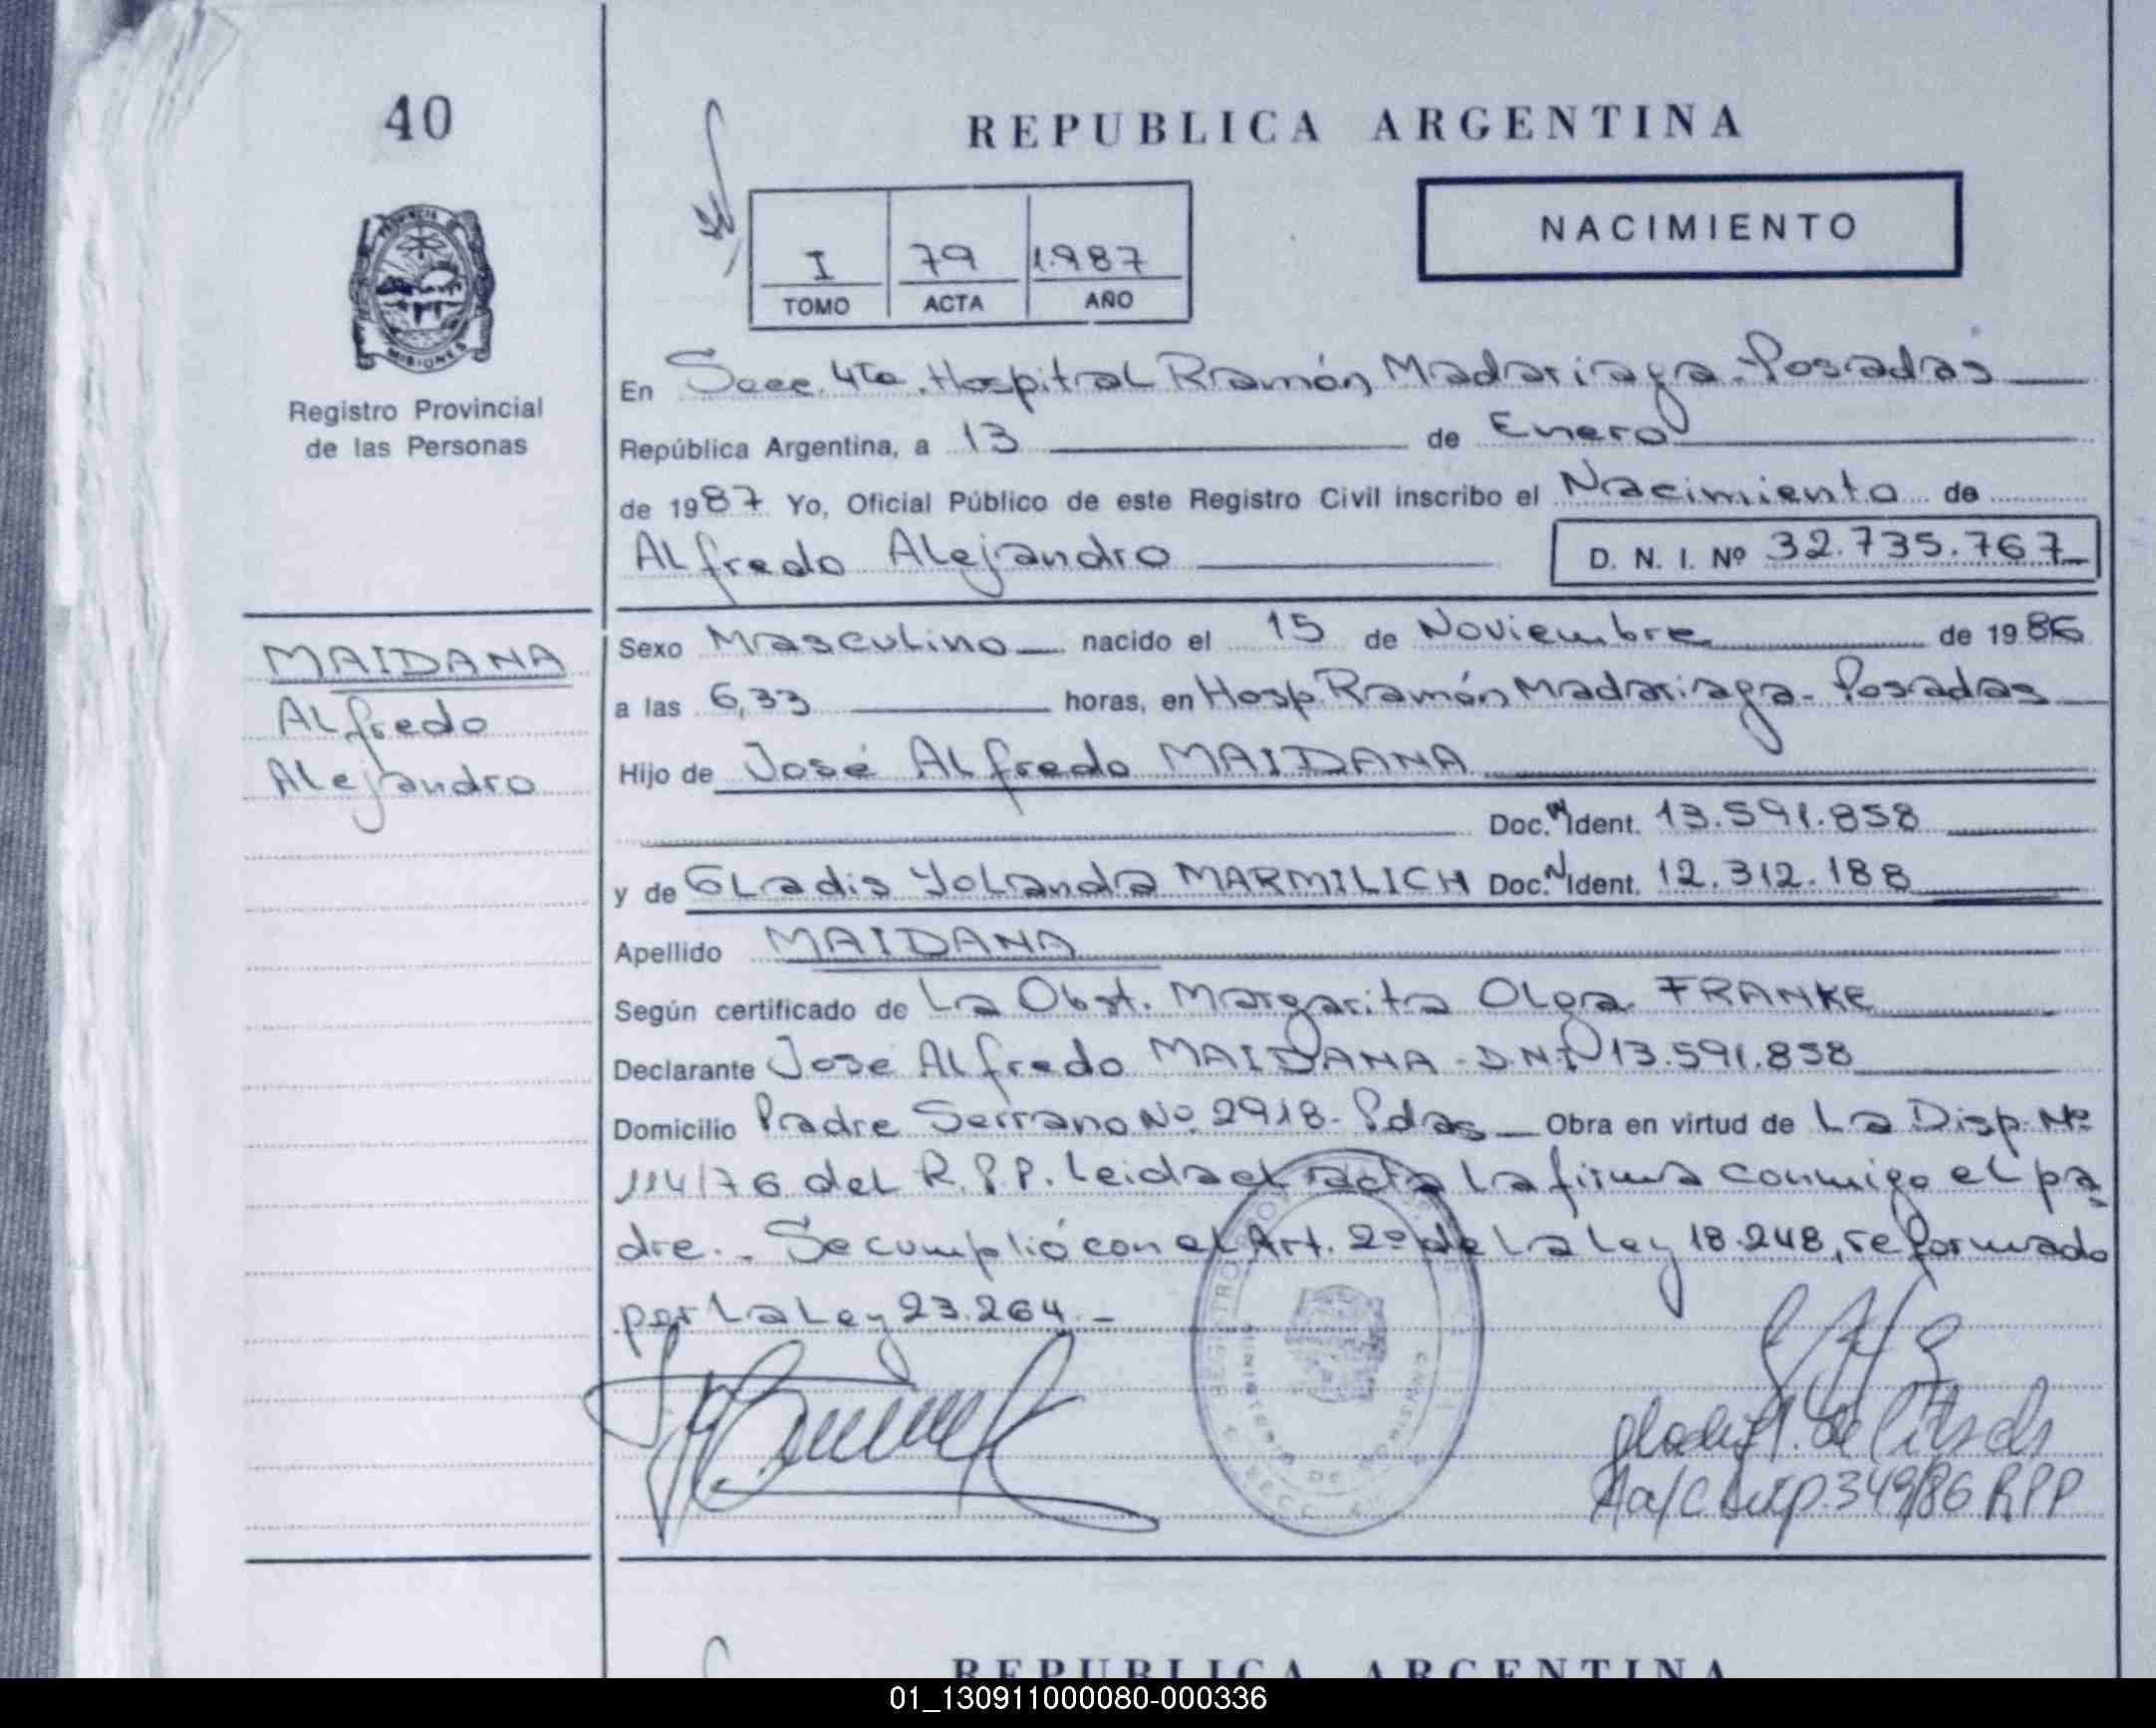 40
REPUBLICA ARGENTINA
NACIMIENTO
I 79 1.987
TOMO ACTA AÑO
PROVINCIA
MISIONES
Registro Provincial
de las Personas
En Secc. 4ta. Hospital Ramón Madariaga - Posadas
República Argentina, a 13 de Enero
de 1987 Yo, Oficial Público de este Registro Civil inscribo el Nacimiento de
Alfredo Alejandro D. N. I. Nº 32.735.767
MAIDANA
Alfredo
Alejandro
Sexo Masculino nacido el 15 de Noviembre de 1986
a las 6,33 horas, en Hosp. Ramón Madariaga - Posadas
Hijo de José Alfredo MAIDANA
Doc. N Ident. 13.591.858
y de Gladis Yolanda MARMILICH Doc. N Ident. 12.312.188
Apellido MAIDANA
Según certificado de La Obst. Margarita Olga FRANKE
Declarante José Alfredo MAIDANA - D.N.I 13.591.858
Domicilio Padre Serrano Nº 2918 - Pdas Obra en virtud de La Disp. Nº
114/76 del R.P.P. Leida el acta La firma conmigo el pa
dre.- Se cumplió con el Art. 2º de La Ley 18.248, reformado
por La Ley 23.264.-
REGISTRO
MINISTERIO DE GOBIERNO
SECC.
A/C Disp. 349/86 RPP
REPUBLICA ARGENTINA
01_130911000080-000336